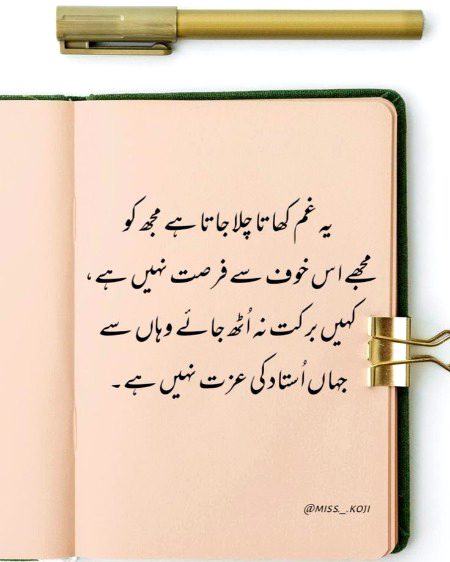 یہ غم کھاتا چلا جاتا ہے مجھ کو
مجھے اس خوف سے فرصت نہیں ہے،
کہیں برکت نہ اُٹھ جائے وہاں سے
جہاں اُستاد کی عزت نہیں ہے۔
@MISS._.KOJI